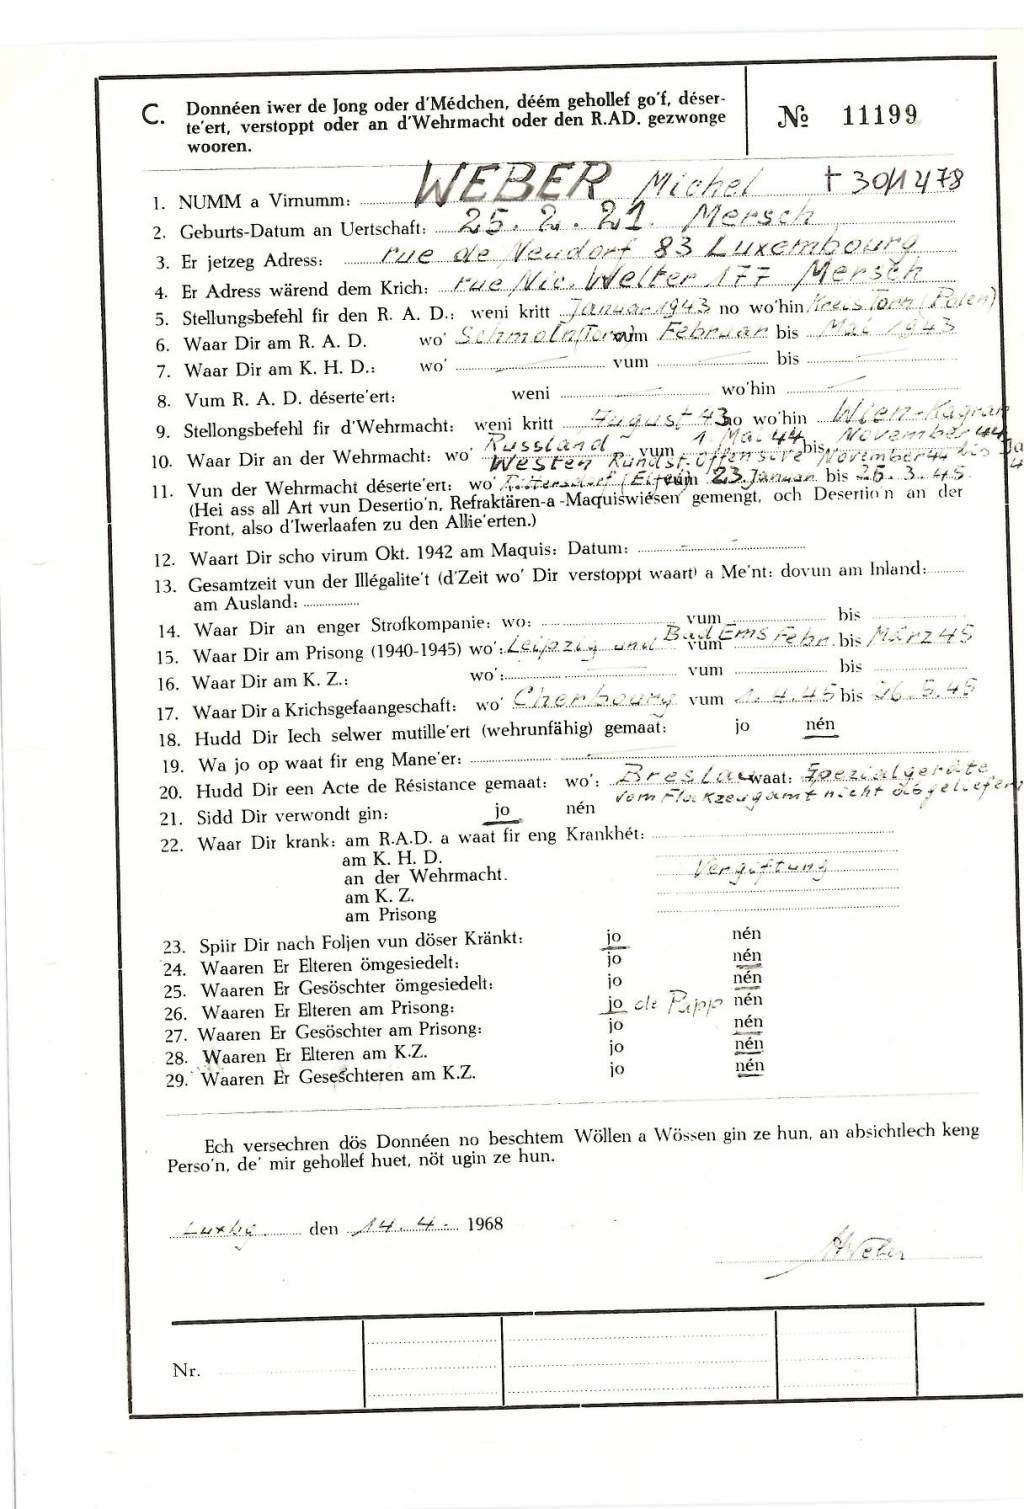 C. Donnéen iwer de Jong oder d'Médchen, déém gehollef go'f, déser-
te'ert, verstoppt oder an d'Wehrmacht oder den R.AD. gezwonge
wooren.
№ 11199
1. NUMM a Virnumm: WEBER Michel † 30/12/78
2. Geburts-Datum an Uertschaft: 25. 2. 21. Mersch
3. Er jetzeg Adress: rue de Neudorf 83 Luxembourg
4. Er Adress wärend dem Krich: rue Nic. Welter 177 Mersch
5. Stellungsbefehl fir den R. A. D.: weni kritt Januar 1943 no wo'hin Kreis Torn (Polen)
6. Waar Dir am R. A. D. wo' Schmoln (Torn) vum Februar bis Mai 1943
7. Waar Dir am K. H. D.: wo' vum bis
8. Vum R. A. D. déserte'ert: weni wo'hin
9. Stellongsbefehl fir d'Wehrmacht: weni kritt August 43 no wo'hin Wien-Kagran
10. Waar Dir an der Wehrmacht: wo' Russland vum 1. Mai 44 bis November 44
Westen Rundst. Offensive November 44 bis Ja
11. Vun der Wehrmacht déserte'ert: wo' Rittersdorf (Eifel) vum 23. Januar bis 26. 3. 45.
(Hei ass all Art vun Desertio'n, Refraktären-a-Maquiswiésen gemengt, och Desertio'n an der
Front, also d'Iwerlaafen zu den Allie'erten.)
12. Waart Dir scho virum Okt. 1942 am Maquis: Datum:
13. Gesamtzeit vun der Illégalite't (d'Zeit wo' Dir verstoppt waart) a Me'nt: dovun am Inland:
am Ausland:
14. Waar Dir an enger Strofkompanie: wo: vum bis
15. Waar Dir am Prisong (1940-1945) wo': Leipzig und Bad Ems vum Febr. bis März 45
16. Waar Dir am K. Z.: wo': vum bis
17. Waar Dir a Krichsgefaangeschaft: wo' Cherbourg vum 1. 4. 45 bis 26. 5. 45
18. Hudd Dir Iech selwer mutille'ert (wehrunfähig) gemaat: jo nén
19. Wa jo op waat fir eng Mane'er:
20. Hudd Dir een Acte de Résistance gemaat: wo': Breslau waat: Spezialgeräte
vom Flackzeugamt nicht abgeliefert
21. Sidd Dir verwondt gin: jo nén
22. Waar Dir krank: am R.A.D. a waat fir eng Krankhét:
am K. H. D.
an der Wehrmacht. Vergiftung
am K. Z.
am Prisong
23. Spiir Dir nach Foljen vun döser Kränkt: jo nén
24. Waaren Er Elteren ömgesiedelt: jo nén
25. Waaren Er Gesöschter ömgesiedelt: jo nén
26. Waaren Er Elteren am Prisong: jo de Papp nén
27. Waaren Er Gesöschter am Prisong: jo nén
28. Waaren Er Elteren am K.Z. jo nén
29. Waaren Er Geseschteren am K.Z. jo nén
Ech versechren dös Donnéen no beschtem Wöllen a Wössen gin ze hun, an absichtlech keng
Perso'n, de' mir gehollef huet, nöt ugin ze hun.
Luxbg den 14. 4. 1968
MWeber
Nr.